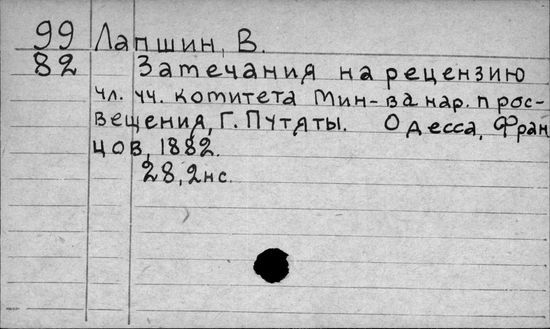 99 Лапшин, В.
82 Замечания на рецензию
чл. уч. комитета мин-ва нар. прос-
вещения, Г. Путяты. Одесса, Фран
цов, 1882.
28, 2нс.